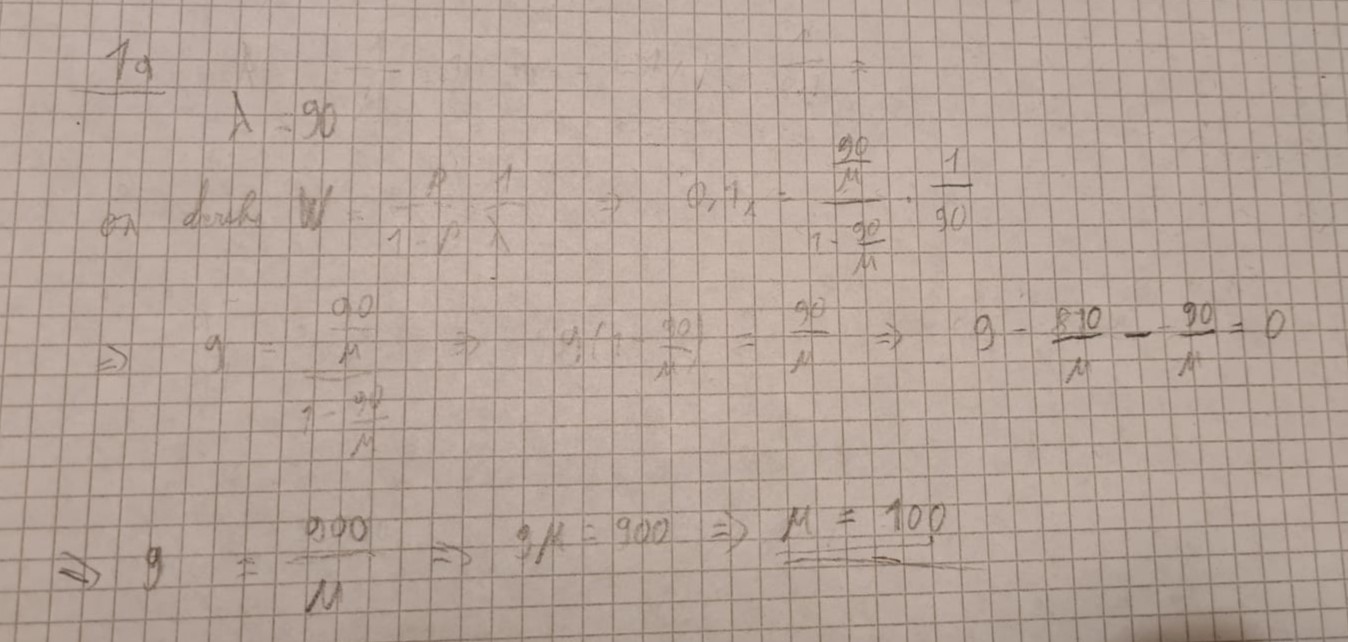 1a
λ = 90
W = ρ/(1-ρ) 1/λ ⇒ 0,1 = (90/μ)/(1-90/μ) · 1/90
⇒ 9 = (90/μ)/(1-90/μ) ⇒ 9(1-90/μ) = 90/μ ⇒ 9 - 810/μ - 90/μ = 0
⇒ 9 = 900/μ ⇒ 9μ = 900 ⇒ μ = 100